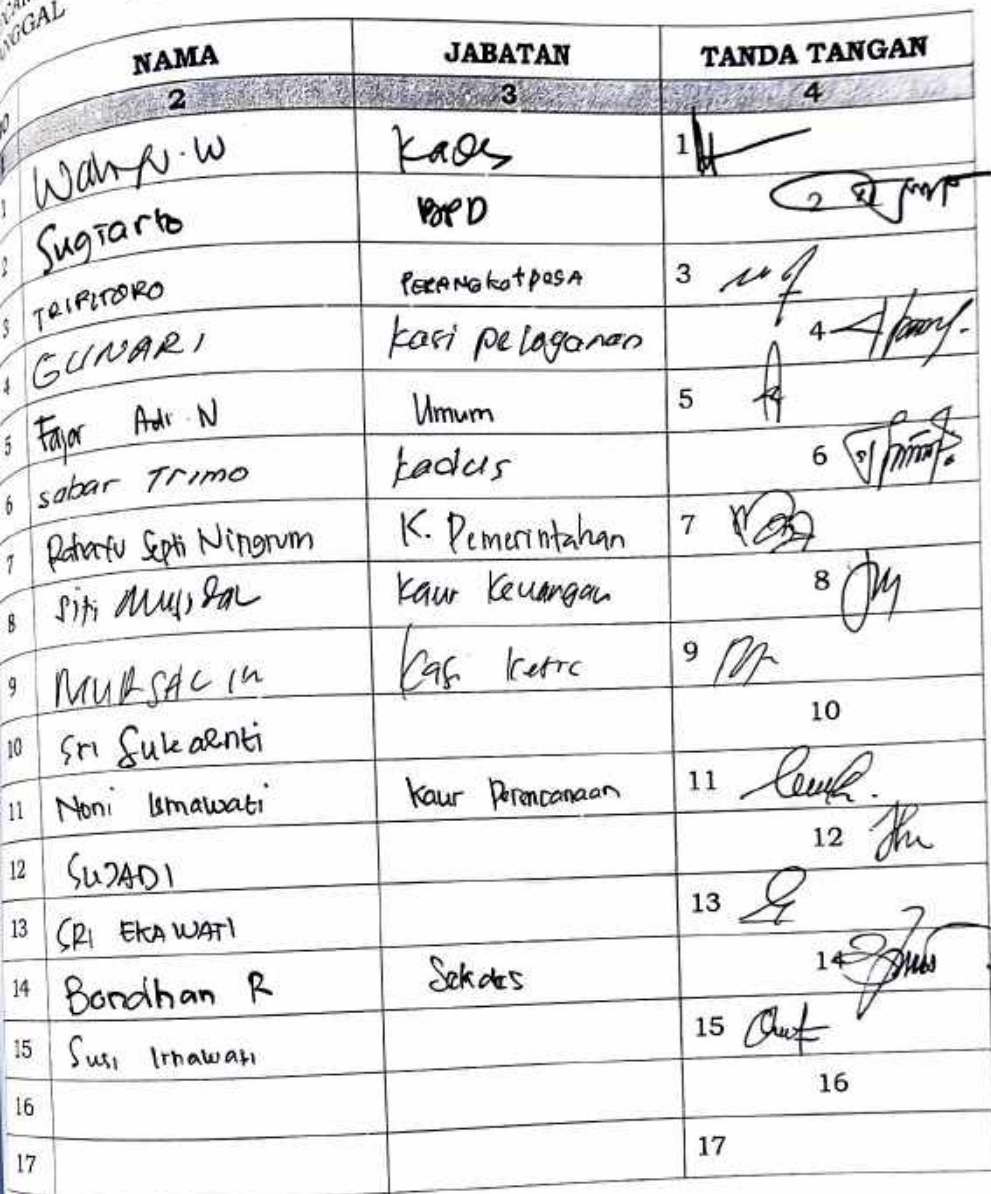 TANGGAL
NAMA JABATAN TANDA TANGAN
2 3 4
1 Wahyu.W Kades 1
2 Sugiarto BPD 2
3 TRIPITORO PERANGkat DESA 3
4 GUNARI kasi pelayanan 4
5 Fajar Adi N Umum 5
6 sabar Trimo kadus 6
7 Rahayu Septi Ningrum K. Pemerintahan 7
8 Siti Kaur Keuangan 8
9 MURSALIN Kasi 9
10 Sri Sukarnti 10
11 Noni Ismawati Kaur Perencanaan 11
12 SUJADI 12
13 SRI EKAWATI 13
14 Bondhan R Sekdes 14
15 Susi Irnawati 15
16 16
17 17